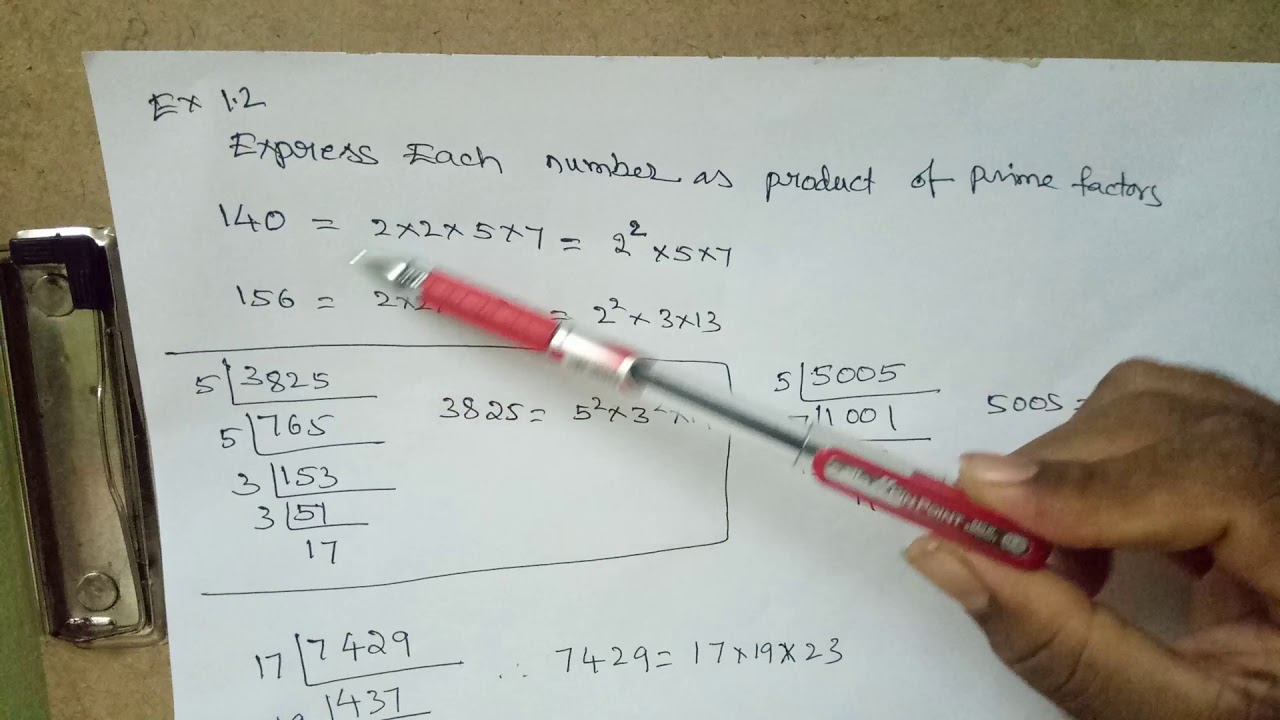 Ex 1.2
Express Each number as product of prime factors
140 = 2×2×5×7 = 2² ×5×7
156 = 2×2 = 2² × 3×13
5 3825
5 765
3 153
3 51
17
3825 = 5²×3²×
5 5005
7 1001
5005 =
17 7429
1437
∴ 7429 = 17×19×23
POINT